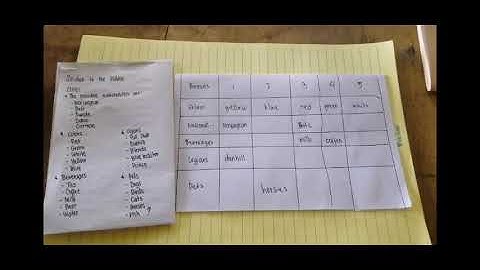 Clues
The possible nationalities are:
- Norwegian
- Brit
- Swede
- Dane
- German
Colors
- Red
- Green
- White
- Yellow
- Blue
Cigars
- Pall Mall
- Dunhill
- Blends
- Blue Master
- Prince
Beverages
- Tea
- Coffee
- Milk
- Beer
- Water
Pets
- Dogs
- Birds
- Cats
- Horses
- Fish ?
Houses 1 2 3 4 5
Colors yellow blue red green white
National norwegian Brit
Beverages milk coffee
Cigars dunhill
Pets horses